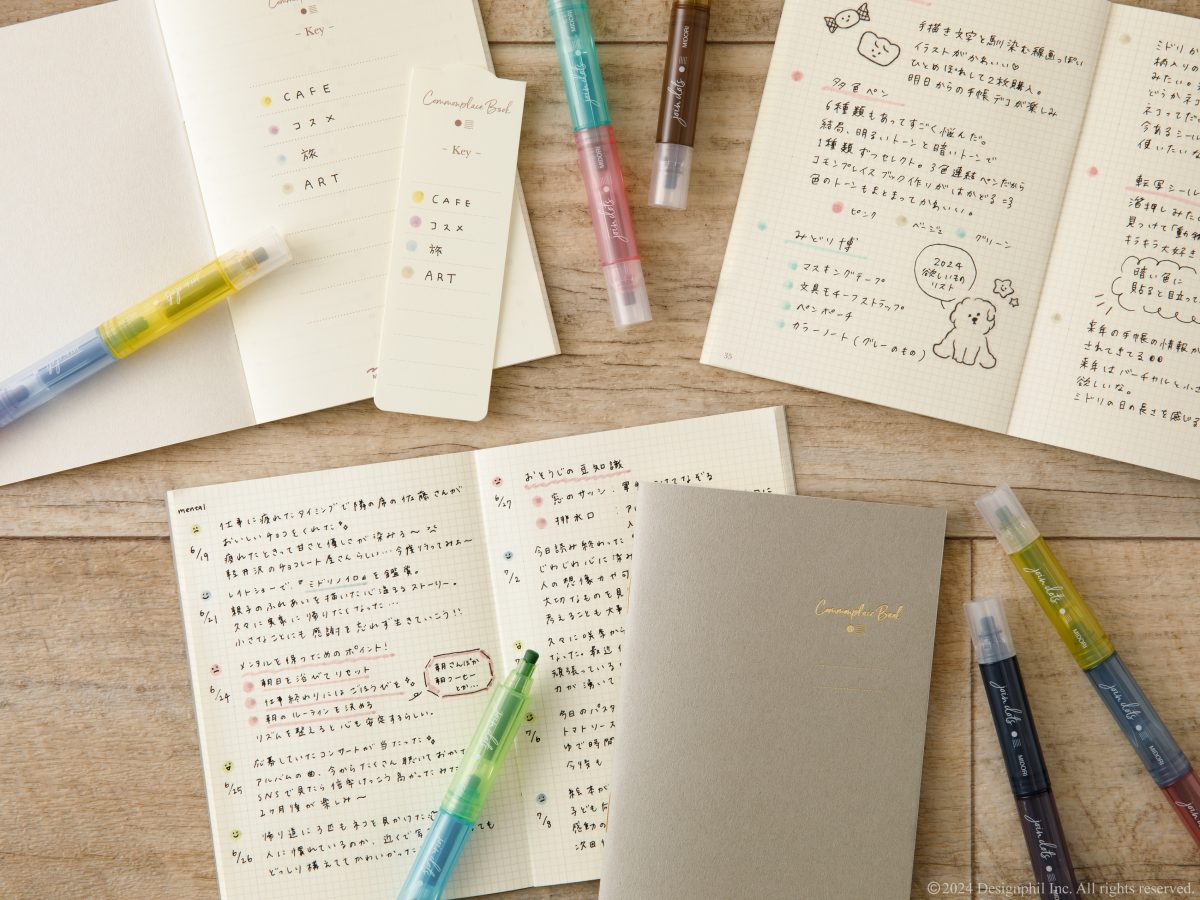 Commonplace Book
– Key –
CAFE
コスメ
旅
ART
Commonplace Book
– Key –
CAFE
コスメ
旅
ART
join dots
MIDORI
join dots
MIDORI
join dots
MIDORI
手描き文字と馴染む線画っぽい
イラストがかわいい♡
ひとめぼれして2枚購入。
明日からの手帳デコが楽しみ
多色ペン
6種類もあってすごく悩んだ。
結局、明るいトーンと暗いトーンで
1種類ずつセレクト。3色連結ペンだから
コモンプレイスブック作りがはかどる=3
色のトーンもまとまってかわいい。
ピンク
ベージュ
グリーン
みどり博
マスキングテープ
文具モチーフストラップ
ペンポーチ
カラーノート(グレーのもの)
2024
欲しいもの
リスト
35
ミドリか
柄入りの
みたい。
どうかネ
ネコってだ
今あるシール
使いたいな
転写シール
溜押しみた
見つけて「動物
キラキラ大好き
暗い色に
貼ると目立って
来年の手帳の情報が
されてきてる
来年はバーチャルと小さ
欲しいな。
ミドリの日の長さを感じる
mental
6/19
仕事に疲れたタイミングで隣の席の佐藤さんが
おいしいチョコをくれた
疲れたときって甘さと優しさが染みる〜
軽井沢のチョコレート屋さんらしい…今度行ってみよ〜
6/21
レイトショーで、『ミドリノイロ』を鑑賞。
親子のふれあいを描いた心温まるストーリー。
久々に実家に帰りたくなった…
小さなことにも感謝を忘れず生きていこう!!
6/24
メンタルを保つためのポイント!
朝日を浴びてリセット
仕事終わりにはごほうびを
朝のルーティンを決める
リズムを整えると心も安定するらしい。
朝さんぽか
朝コーヒー
とか…
6/25
応募していたコンサートが当たった
アルバムの曲、今からたくさん聴いておか
SNSで見たら倍率けっこう高かったみた
2ヶ月後が楽しみ〜
6/26
帰り道に3匹もネコを見かけた
人に慣れているのか、近くで
ても
どっしり構えててかわいかった
6/27
おそうじの豆知識
窓のサッシ:
排水口:
7/2
今日読み終わった
じわじわ心に染み
人の想像力や可
大切なものを見
考えることも大事
久々に
なった。最近
頑張っている
力が湧いて
7/6
今日のパスタ
トマトソース
ゆで時間
今後も
7/8
絵本が
子ども
感動の
次回
Commonplace Book
join dots
MIDORI
join dots
MIDORI
join dots
MIDORI
join dots
©2024 Designphil Inc. All rights reserved.